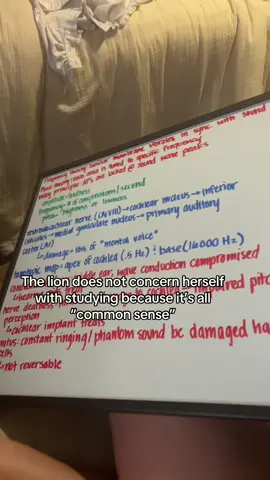 Frequency theory: basilar membrane vibrates in sync with sound
Place theory: each area is tuned to specific frequency
Volley principle: APs are locked @ sound wave peaks
amplitude = loudness
frequency = # of compressions/second
pitch = highness or lowness
vestibulocochlear nerve (CN VIII) → cochlear nucleus → inferior
colliculus → medial geniculate nucleus → primary auditory
cortex (A1)
↳ damage = loss of "mental voice"
tonotopic map = apex of cochlea (.5 Hz) : base (16000 Hz)
middle ear, wave conduction compromised
The lion does not concern herself
with studying because it's all
"common sense"
nerve deafness: cochlea → impaired pitch
perception
↳ cochlear implant treats
constant ringing / phantom sound bc damaged
cells
↳ not reversable